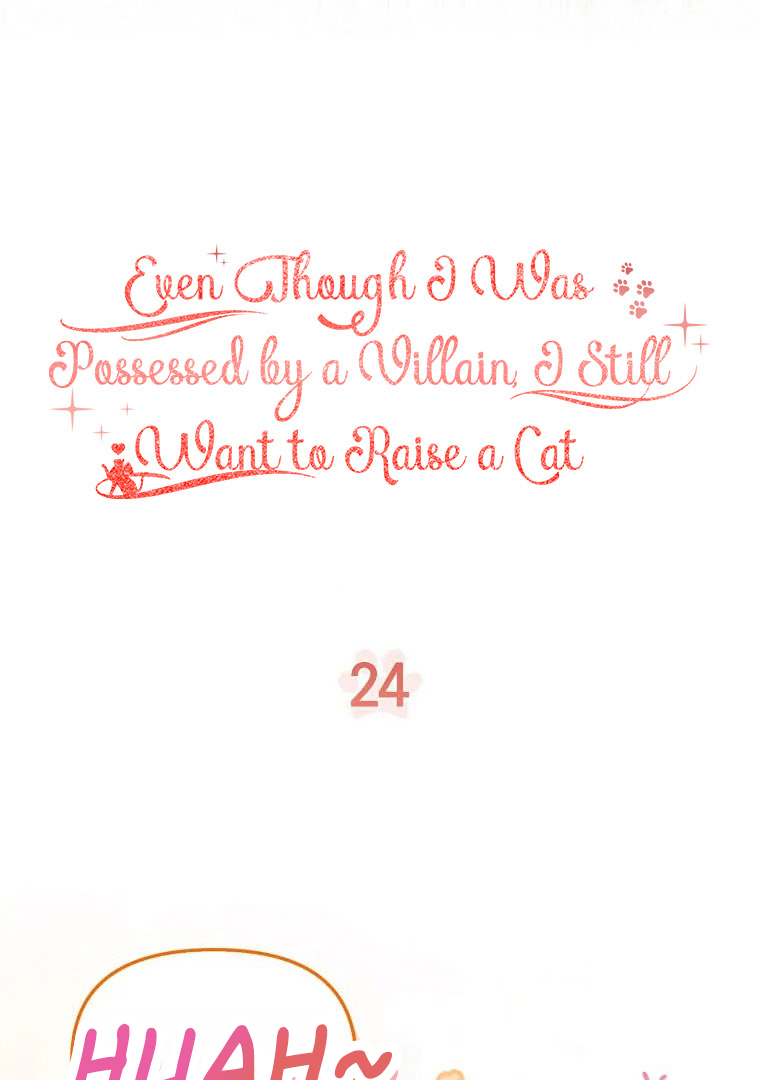 Even Though I Was
Possessed by a Villain, I Still
Want to Raise a Cat
24
HUAH~